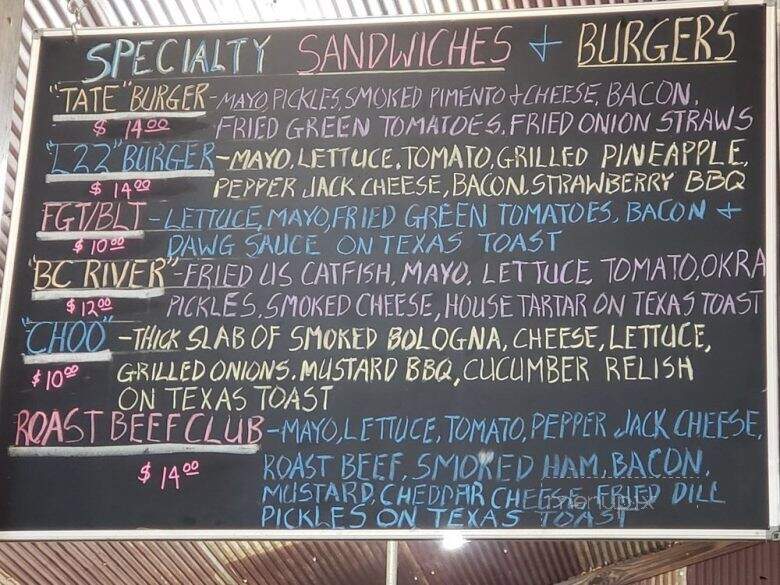 SPECIALTY SANDWICHES + BURGERS
"TATE" BURGER - MAYO, PICKLES, SMOKED PIMENTO + CHEESE, BACON,
$ 14.00 FRIED GREEN TOMATOES, FRIED ONION STRAWS
"L22" BURGER - MAYO, LETTUCE, TOMATO, GRILLED PINEAPPLE,
$ 14.00 PEPPER JACK CHEESE, BACON, STRAWBERRY BBQ
FGT/BLT - LETTUCE, MAYO, FRIED GREEN TOMATOES, BACON +
$ 10.00 DAWG SAUCE ON TEXAS TOAST
"BC RIVER" - FRIED US CATFISH, MAYO, LETTUCE, TOMATO, OKRA
$ 12.00 PICKLES, SMOKED CHEESE, HOUSE TARTAR ON TEXAS TOAST
"CHOO" - THICK SLAB OF SMOKED BOLOGNA, CHEESE, LETTUCE,
$ 10.00 GRILLED ONIONS, MUSTARD BBQ, CUCUMBER RELISH
ON TEXAS TOAST
ROAST BEEF CLUB - MAYO, LETTUCE, TOMATO, PEPPER JACK CHEESE,
$ 14.00 ROAST BEEF, SMOKED HAM, BACON,
MUSTARD, CHEDDAR CHEESE, FRIED DILL
PICKLES ON TEXAS TOAST
menupix